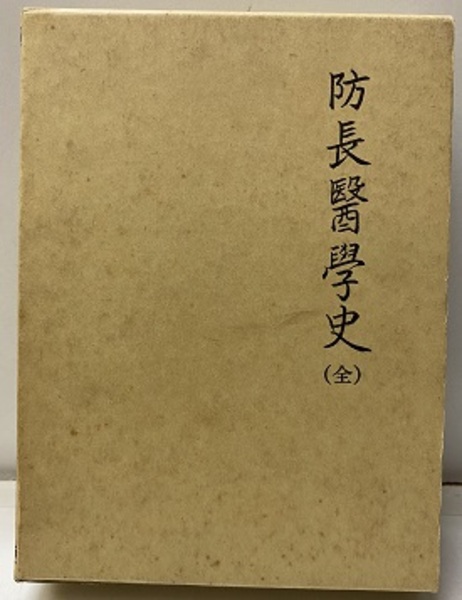 防長醫學史
(全)